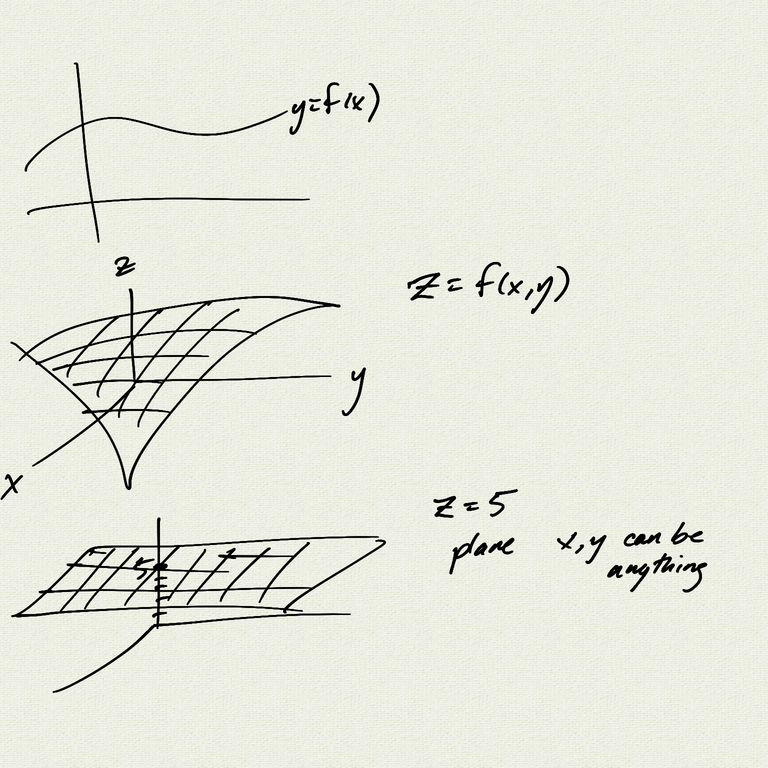 y=f(x)
z
z = f(x,y)
y
x
z = 5
plane x,y can be
anything
5